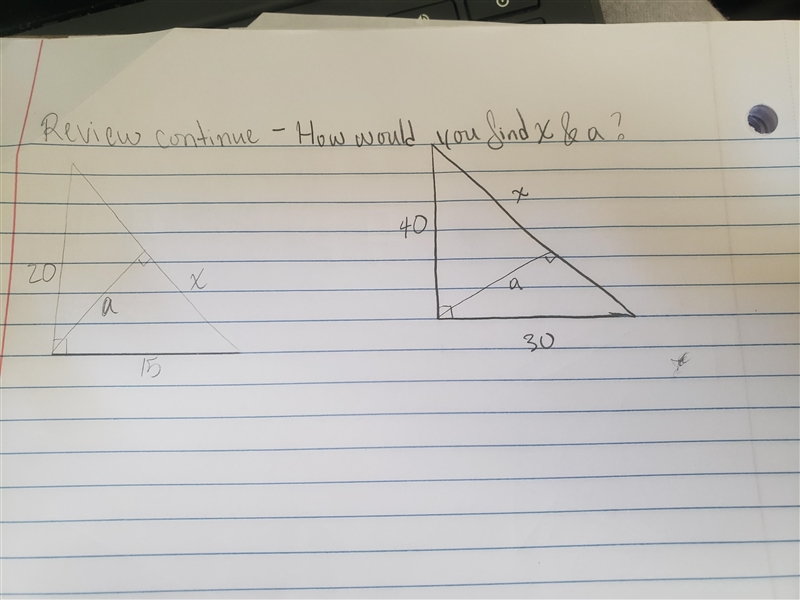 Review continue - How would you find x & a?
x
40
20
x
a
a
30
15